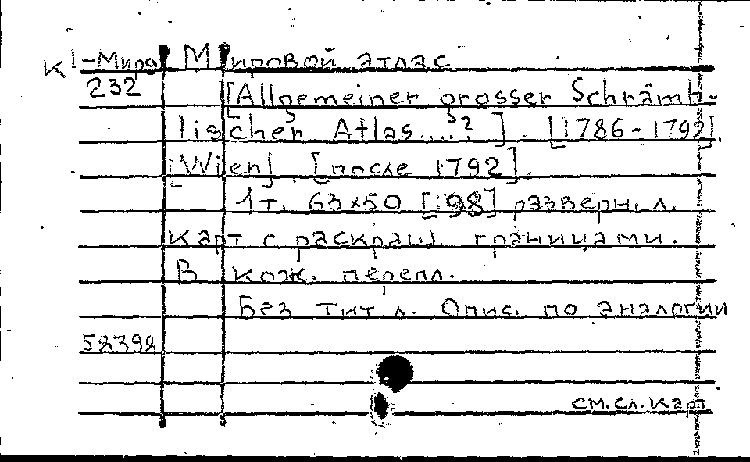 К 1-Мира Мировой атлас
232 [Allgemeiner grosser Schrämb-
lischer Atlas...?]. [1786-1792]
[Wien], [после 1792].
1 т. 63х50 [98] разверн. л.
карт с раскраш. границами.
В кож. перепл.
Без тит. л. Опис. по аналогии
52392
см. сл. карт.